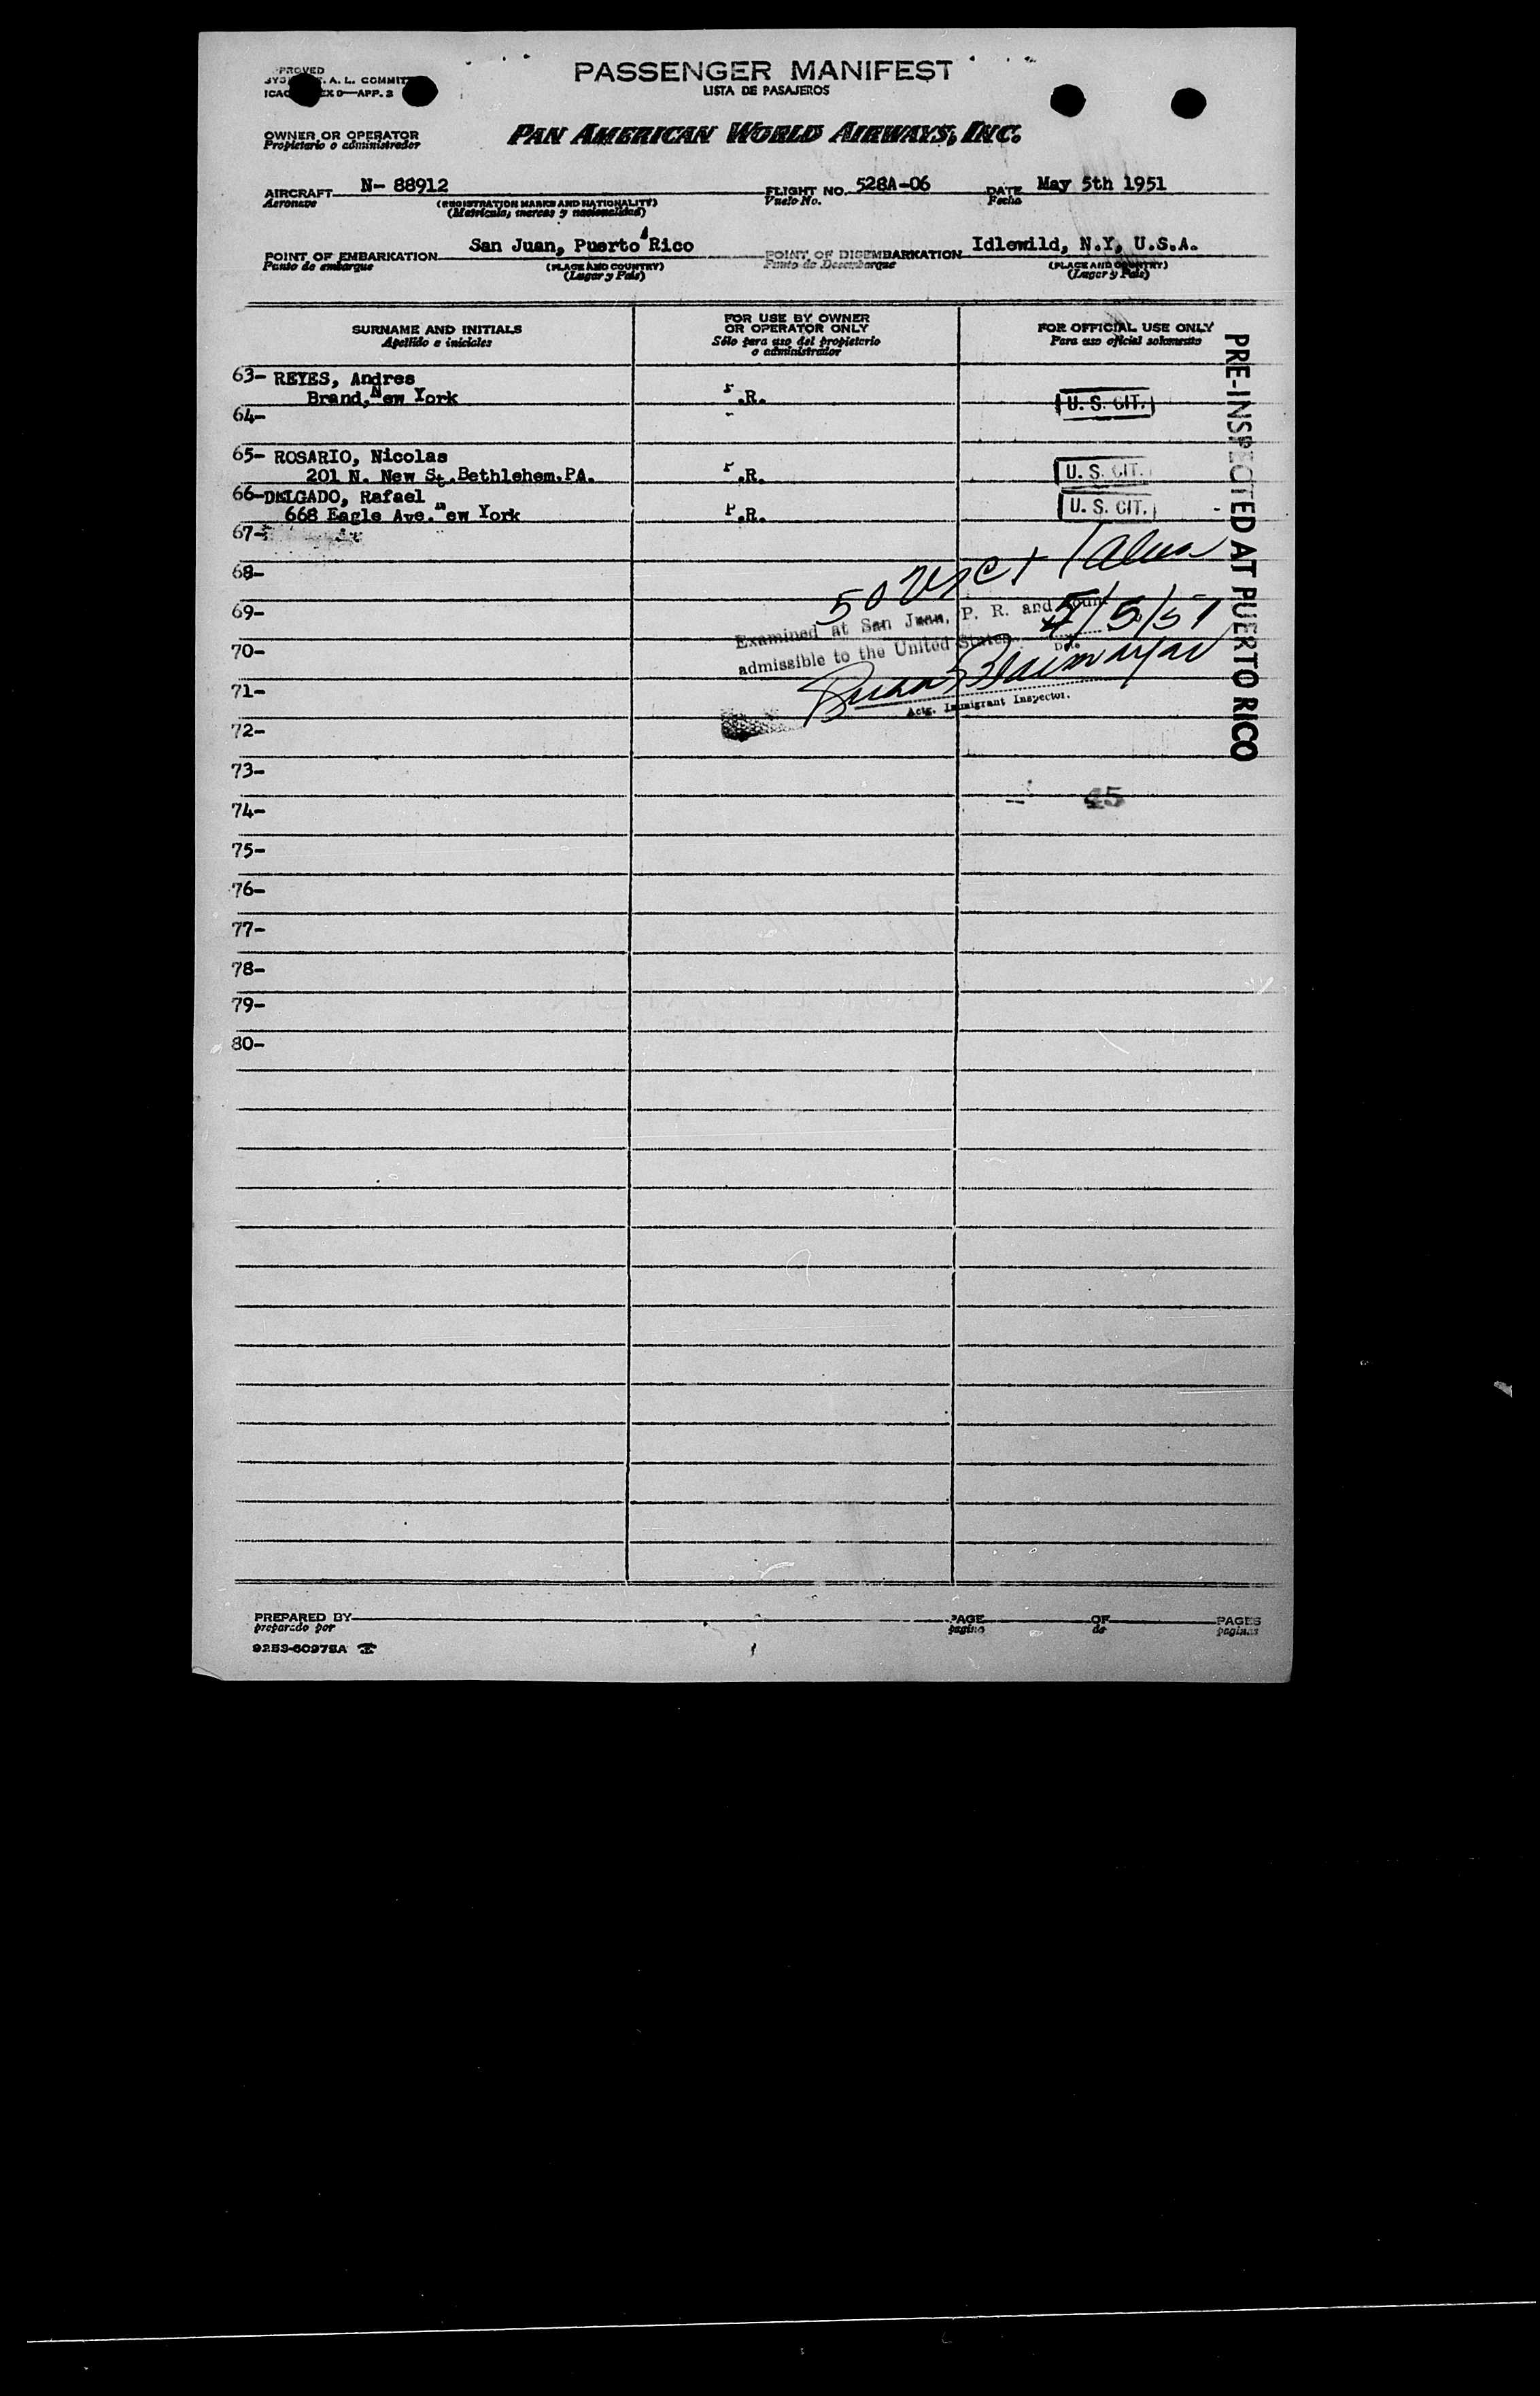 PASSENGER MANIFEST
LISTA DE PASAJEROS
OWNER OR OPERATOR
Propietario o administrador
PAN AMERICAN WORLD AIRWAYS, INC.
AIRCRAFT N- 88912 FLIGHT NO. 528A-06 DATE May 5th 1951
Aeronave (REGISTRATION MARKS AND NATIONALITY) Vuelo No. Fecha
(Matricula, marcas y nacionalidad)
POINT OF EMBARKATION San Juan, Puerto Rico POINT OF DISEMBARKATION Idlewild, N.Y, U.S.A.
Punto de embarque (PLACE AND COUNTRY) Punto de Desembarque (PLACE AND COUNTRY)
(Lugar y Pais) (Lugar y Pais)
SURNAME AND INITIALS
Apellido e iniciales
FOR USE BY OWNER
OR OPERATOR ONLY
Sólo para uso del propietario
o administrador
FOR OFFICIAL USE ONLY
Para uso oficial solamente
PRE-INSPECTED AT PUERTO RICO
63- REYES, Andres
Brand, New York P.R. U. S. CIT.
64-
65- ROSARIO, Nicolas
201 N. New St. Bethlehem. PA. P.R. U. S. CIT.
66- DELGADO, Rafael
668 Eagle Ave. New York P.R. U. S. CIT.
67-
68-
69-
Examined at San Juan, P. R. and found 5/5/51
70-
admissible to the United States Date
71-
Actg. Immigrant Inspector.
72-
73-
45
74-
75-
76-
77-
78-
79-
80-
PREPARED BY PAGE OF PAGES
preparado por pagina de paginas
9253-60975A